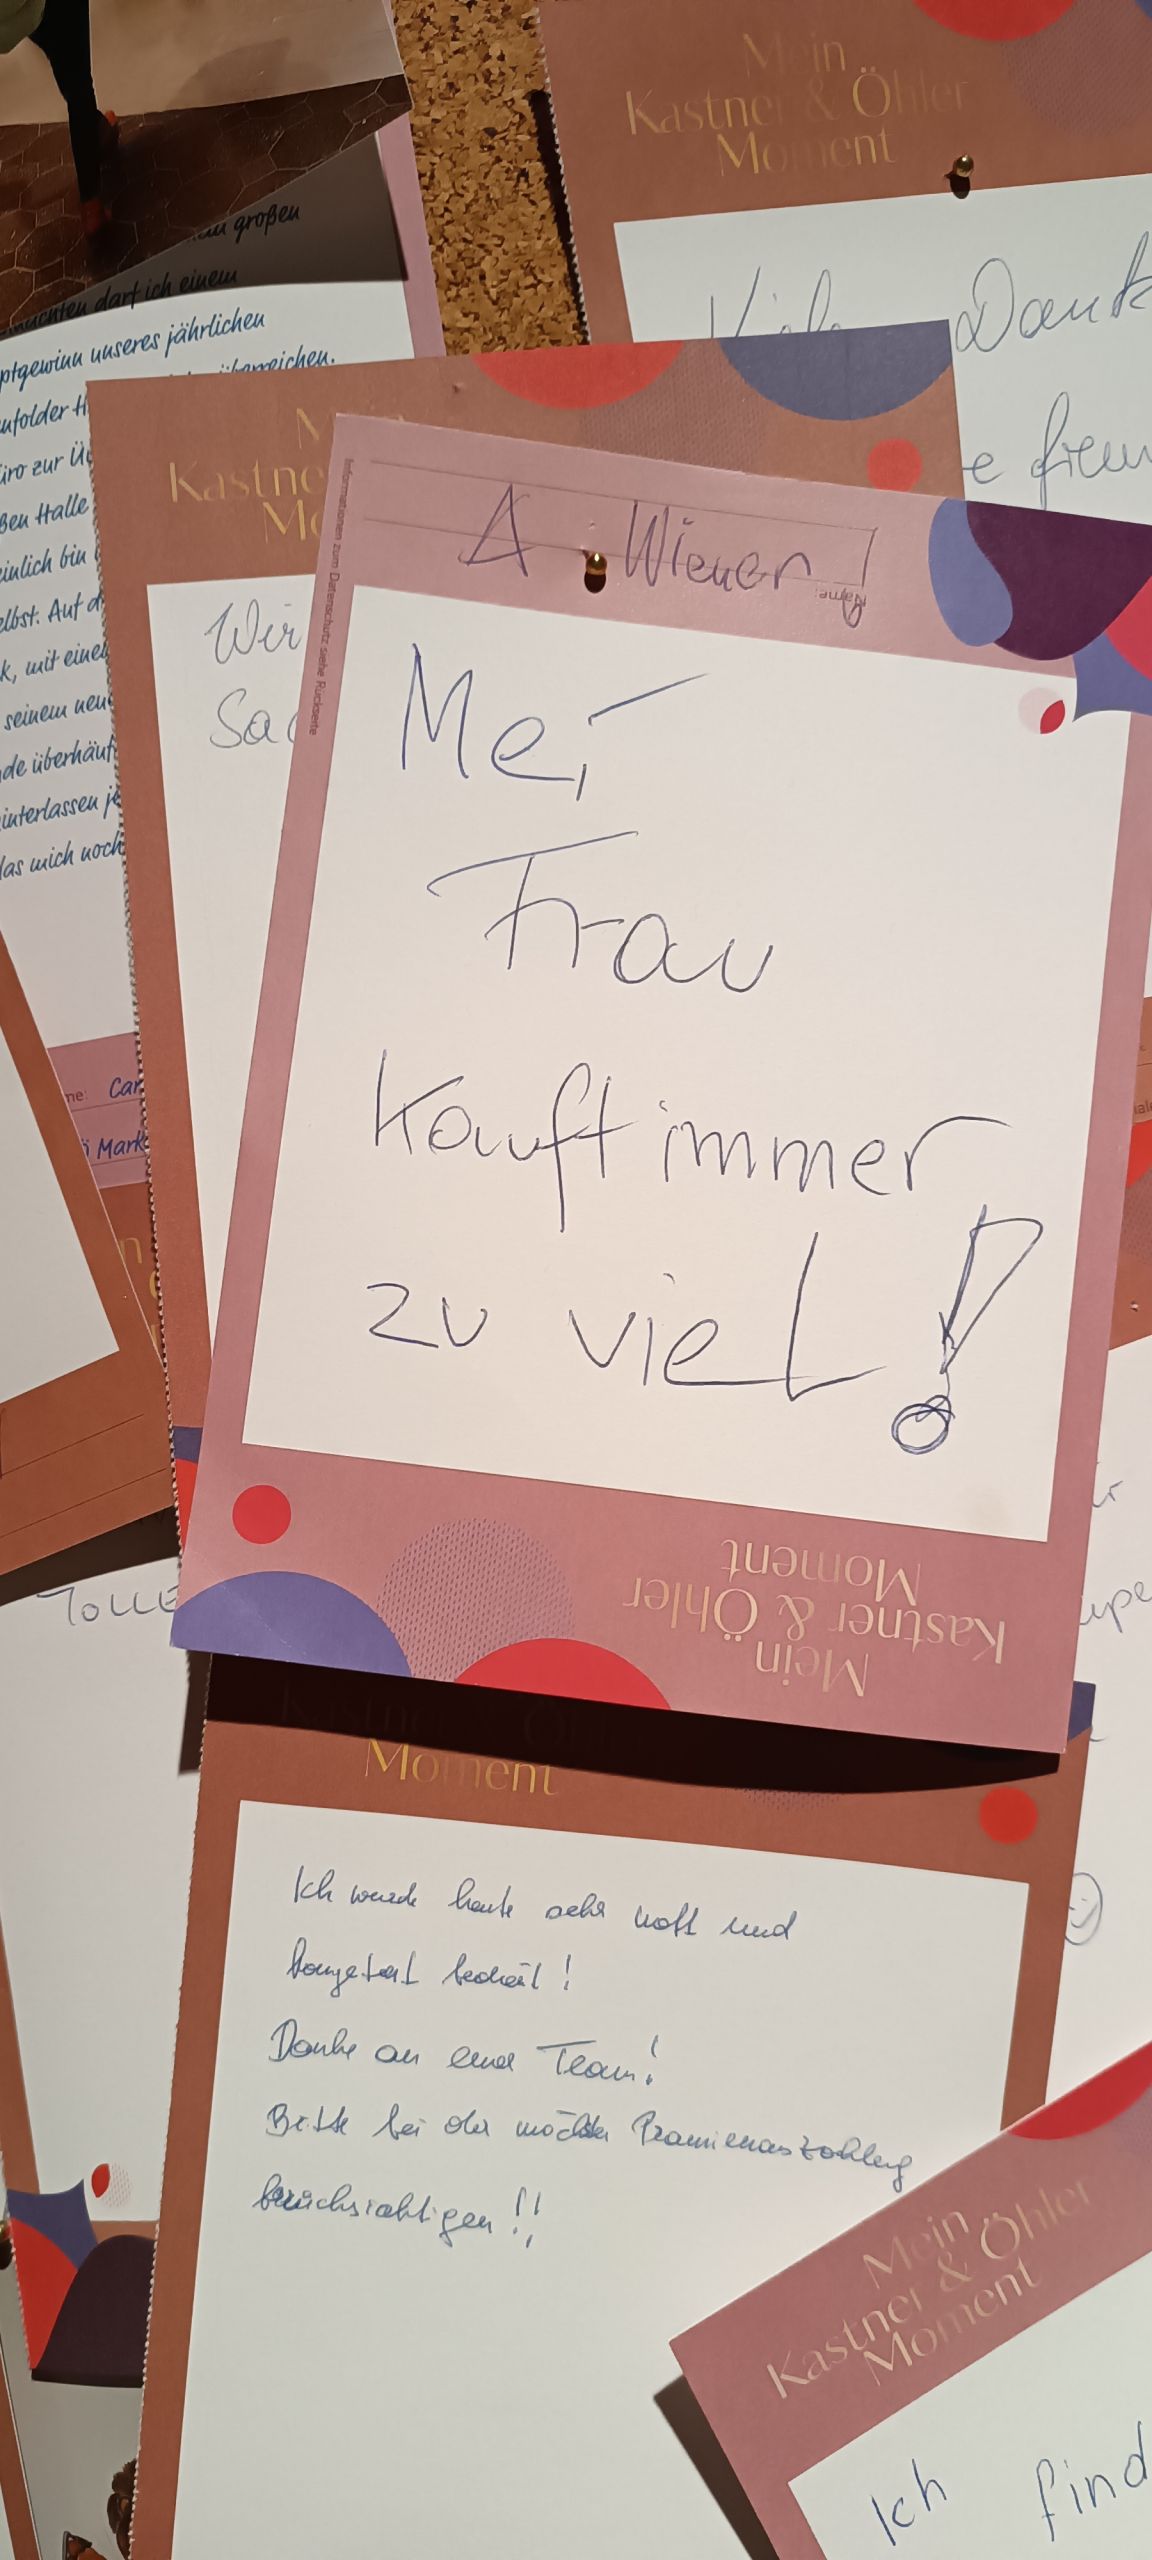 Mein
Kastner & Öhler
Moment
Vielen Dank
großen
darf ich einem
ptgewinn unseres jährlichen
überreichen.
nfolder H
üro zur Ü
ßen Halle
einlich bin
elbst. Auf d
k, mit eine
seinem neu
de überhäuf
interlassen je
das mich noch
me: Car
Mark
M
Kastne
Mo
Wir
Sa
e firm
A. Wiener!
Name:
Informationen zum Datenschutz siehe Rückseite
Mei
Frau
Kauft immer
zu viel!
Mein
Kastner & Öhler
Moment
TOLLE
Kastner & Öhler
Moment
Ich wurde heute sehr nett und
kompetent bedient!
Danke an euer Team!
Bitte bei der nächsten Prämienauszahlung
berücksichtigen!!
Mein
Kastner & Öhler
Moment
Ich find